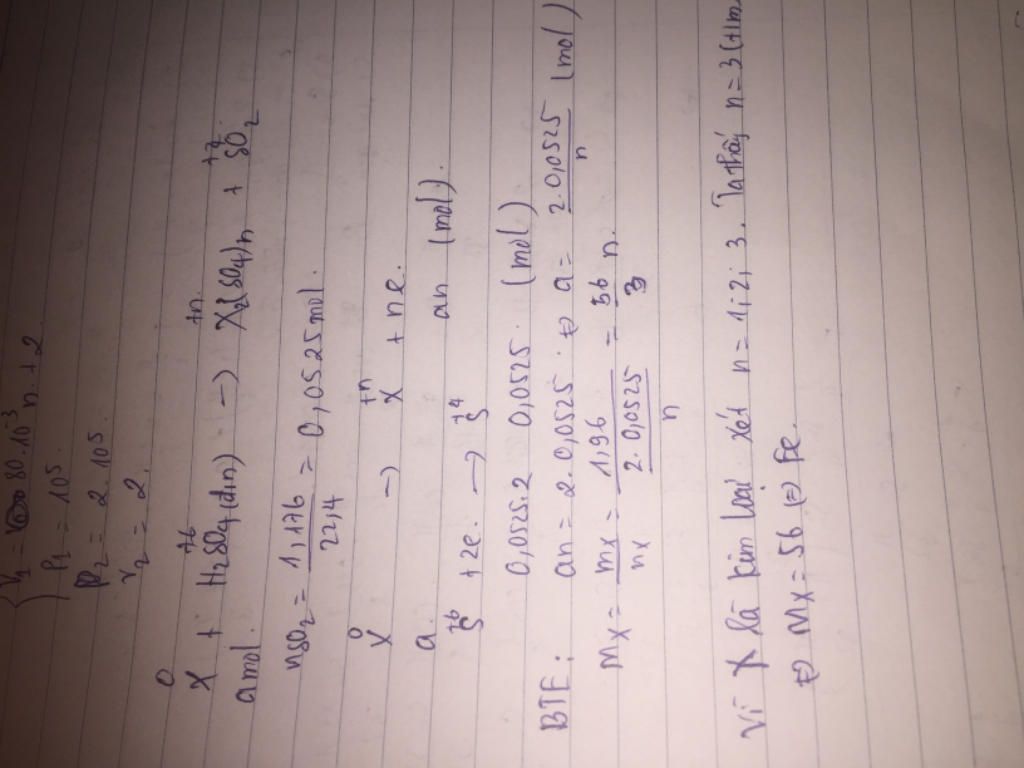 V1 = 80.10⁻³ n + 2
P1 = 10⁵.
P2 = 2.10⁵.
V2 = 2.
X⁰ + H2S⁺⁶O4(dn) → X2(SO4)n⁺ⁿ + S⁺⁴O2
a mol.
nSO2 = 1,176 / 22,4 = 0,0525 mol.
X⁰ → X⁺ⁿ + ne.
a an (mol).
S⁺⁶ + 2e. → S⁺⁴
0,0525.2 0,0525. (mol)
BTE: an = 2.0,0525. ⇔ a = 2.0,0525 / n (mol)
MX = mX / nX = 1,96 / (2.0,0525 / n) = 56 / 3 n.
Vì X là kim loại xét n = 1; 2; 3. Ta thấy n = 3 (tm
⇔ MX = 56 ⇔ Fe.